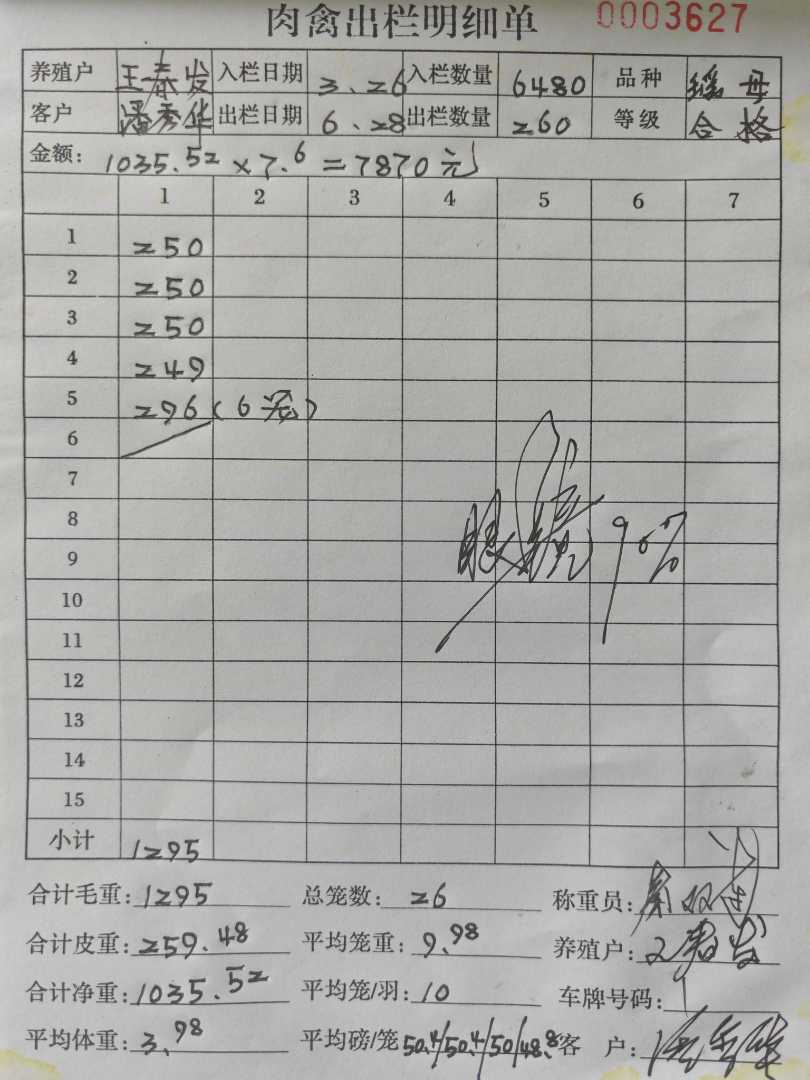 肉禽出栏明细单 0003627
养殖户 王春发 入栏日期 3.26 入栏数量 6480 品种 瑶母
客户 潘秀华 出栏日期 6.28 出栏数量 260 等级 合格
金额: 1035.52 × 7.6 = 7870元
1 2 3 4 5 6 7
1 250
2 250
3 250
4 249
5 296(6笼)
6
7
8
9 90%
10
11
12
13
14
15
小计 1295
合计毛重: 1295 总笼数: 26 称重员:
合计皮重: 259.48 平均笼重: 9.98 养殖户: 王春发
合计净重: 1035.52 平均笼/羽: 10 车牌号码:
平均体重: 3.98 平均磅/笼 50.4/50.4/50/48.8 客户: 潘秀华